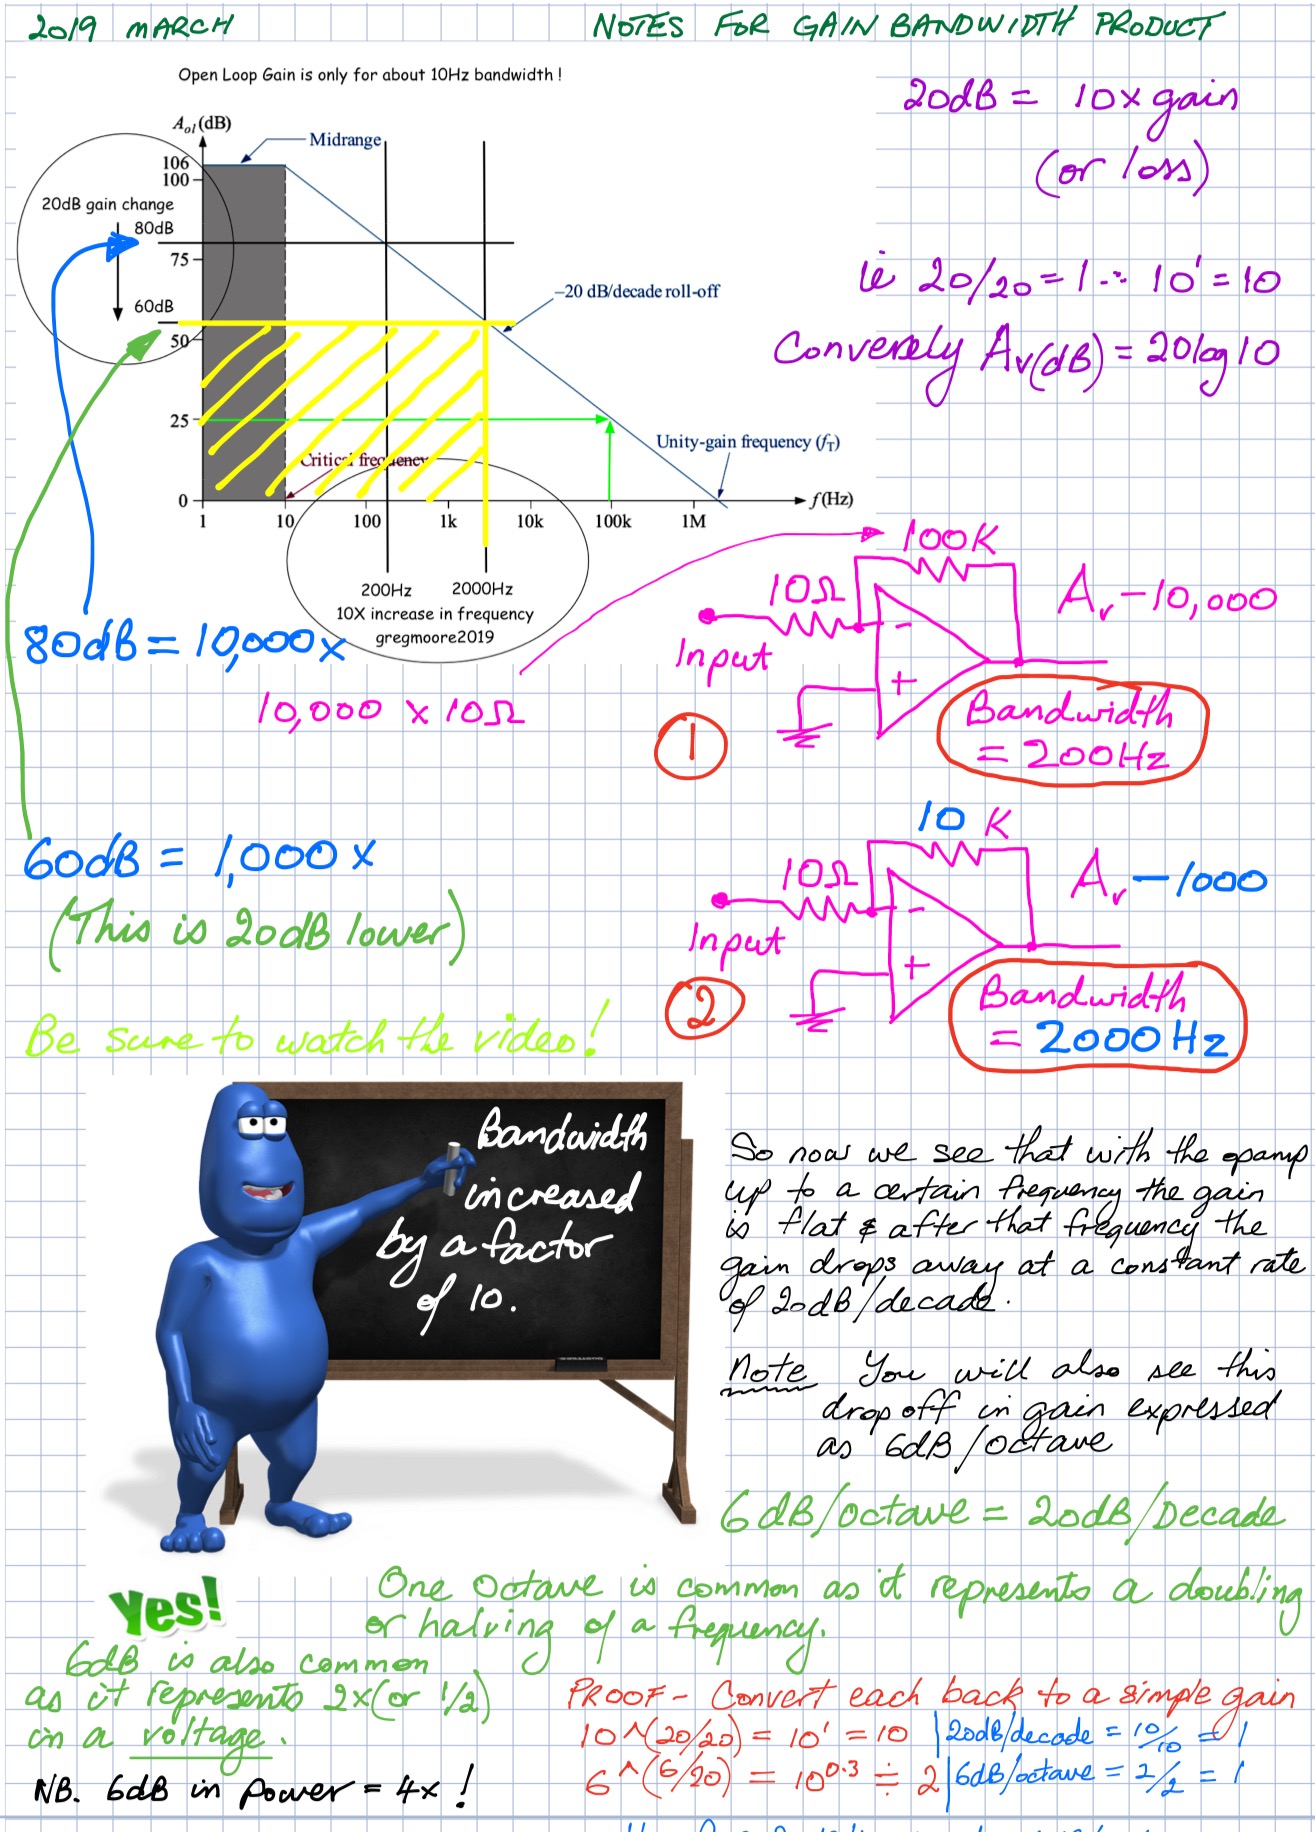 2019 MARCH NOTES FOR GAIN BANDWIDTH PRODUCT
Open Loop Gain is only for about 10Hz bandwidth !
20dB = 10x gain
(or loss)
ie 20/20 = 1 ∴ 10¹ = 10
Conversely Av(dB) = 20log10
Aol (dB)
106
100
75
50
25
0
20dB gain change
80dB
60dB
Midrange
–20 dB/decade roll-off
Unity-gain frequency (fT)
Critical frequency
1 10 100 1k 10k 100k 1M
f (Hz)
200Hz 2000Hz
10X increase in frequency
gregmoore2019
80dB = 10,000x
10,000 x 10Ω
100K
10Ω
Av -10,000
Input
-
+
Bandwidth
= 200Hz
1
60dB = 1,000x
(This is 20dB lower)
10 K
10Ω
Av -1000
Input
-
+
Bandwidth
= 2000Hz
2
Be sure to watch the video!
Bandwidth
increased
by a factor
of 10.
So now we see that with the opamp
up to a certain frequency the gain
is flat & after that frequency the
gain drops away at a constant rate
of 20dB/decade.
Note You will also see this
drop off in gain expressed
as 6dB/octave
6dB/octave = 20dB/Decade
Yes!
One Octave is common as it represents a doubling
or halving of a frequency.
6dB is also common
as it represents 2x (or 1/2)
in a voltage.
NB. 6dB in power = 4x !
PROOF - Convert each back to a simple gain
10^(20/20) = 10¹ = 10 | 20dB/decade = 10/10 = 1
6^(6/20) = 10^0.3 ≑ 2 | 6dB/octave = 2/2 = 1